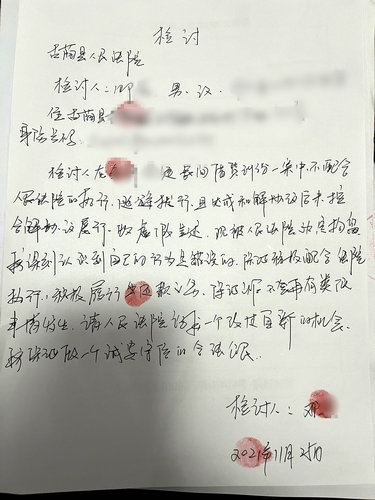 检讨
古蔺县人民法院
检讨人: 邓 男.汉
住古蔺县
身份证号码
检讨人在 民间借贷纠纷一案中,不配合
人民法院的执行,逃避执行,且达成和解协议后未按
和解协议履行,做虚假陈述,现被人民法院决定拘留
我深刻认识到自己的行为是错误的,保证积极配合法院
执行,积极履行 还款义务,保证以后不会再有类似
事情发生,请人民法院给我一个改过自新的机会.
我保证做一个诚实守信的合法公民.
检讨人: 邓
2021年11月25日